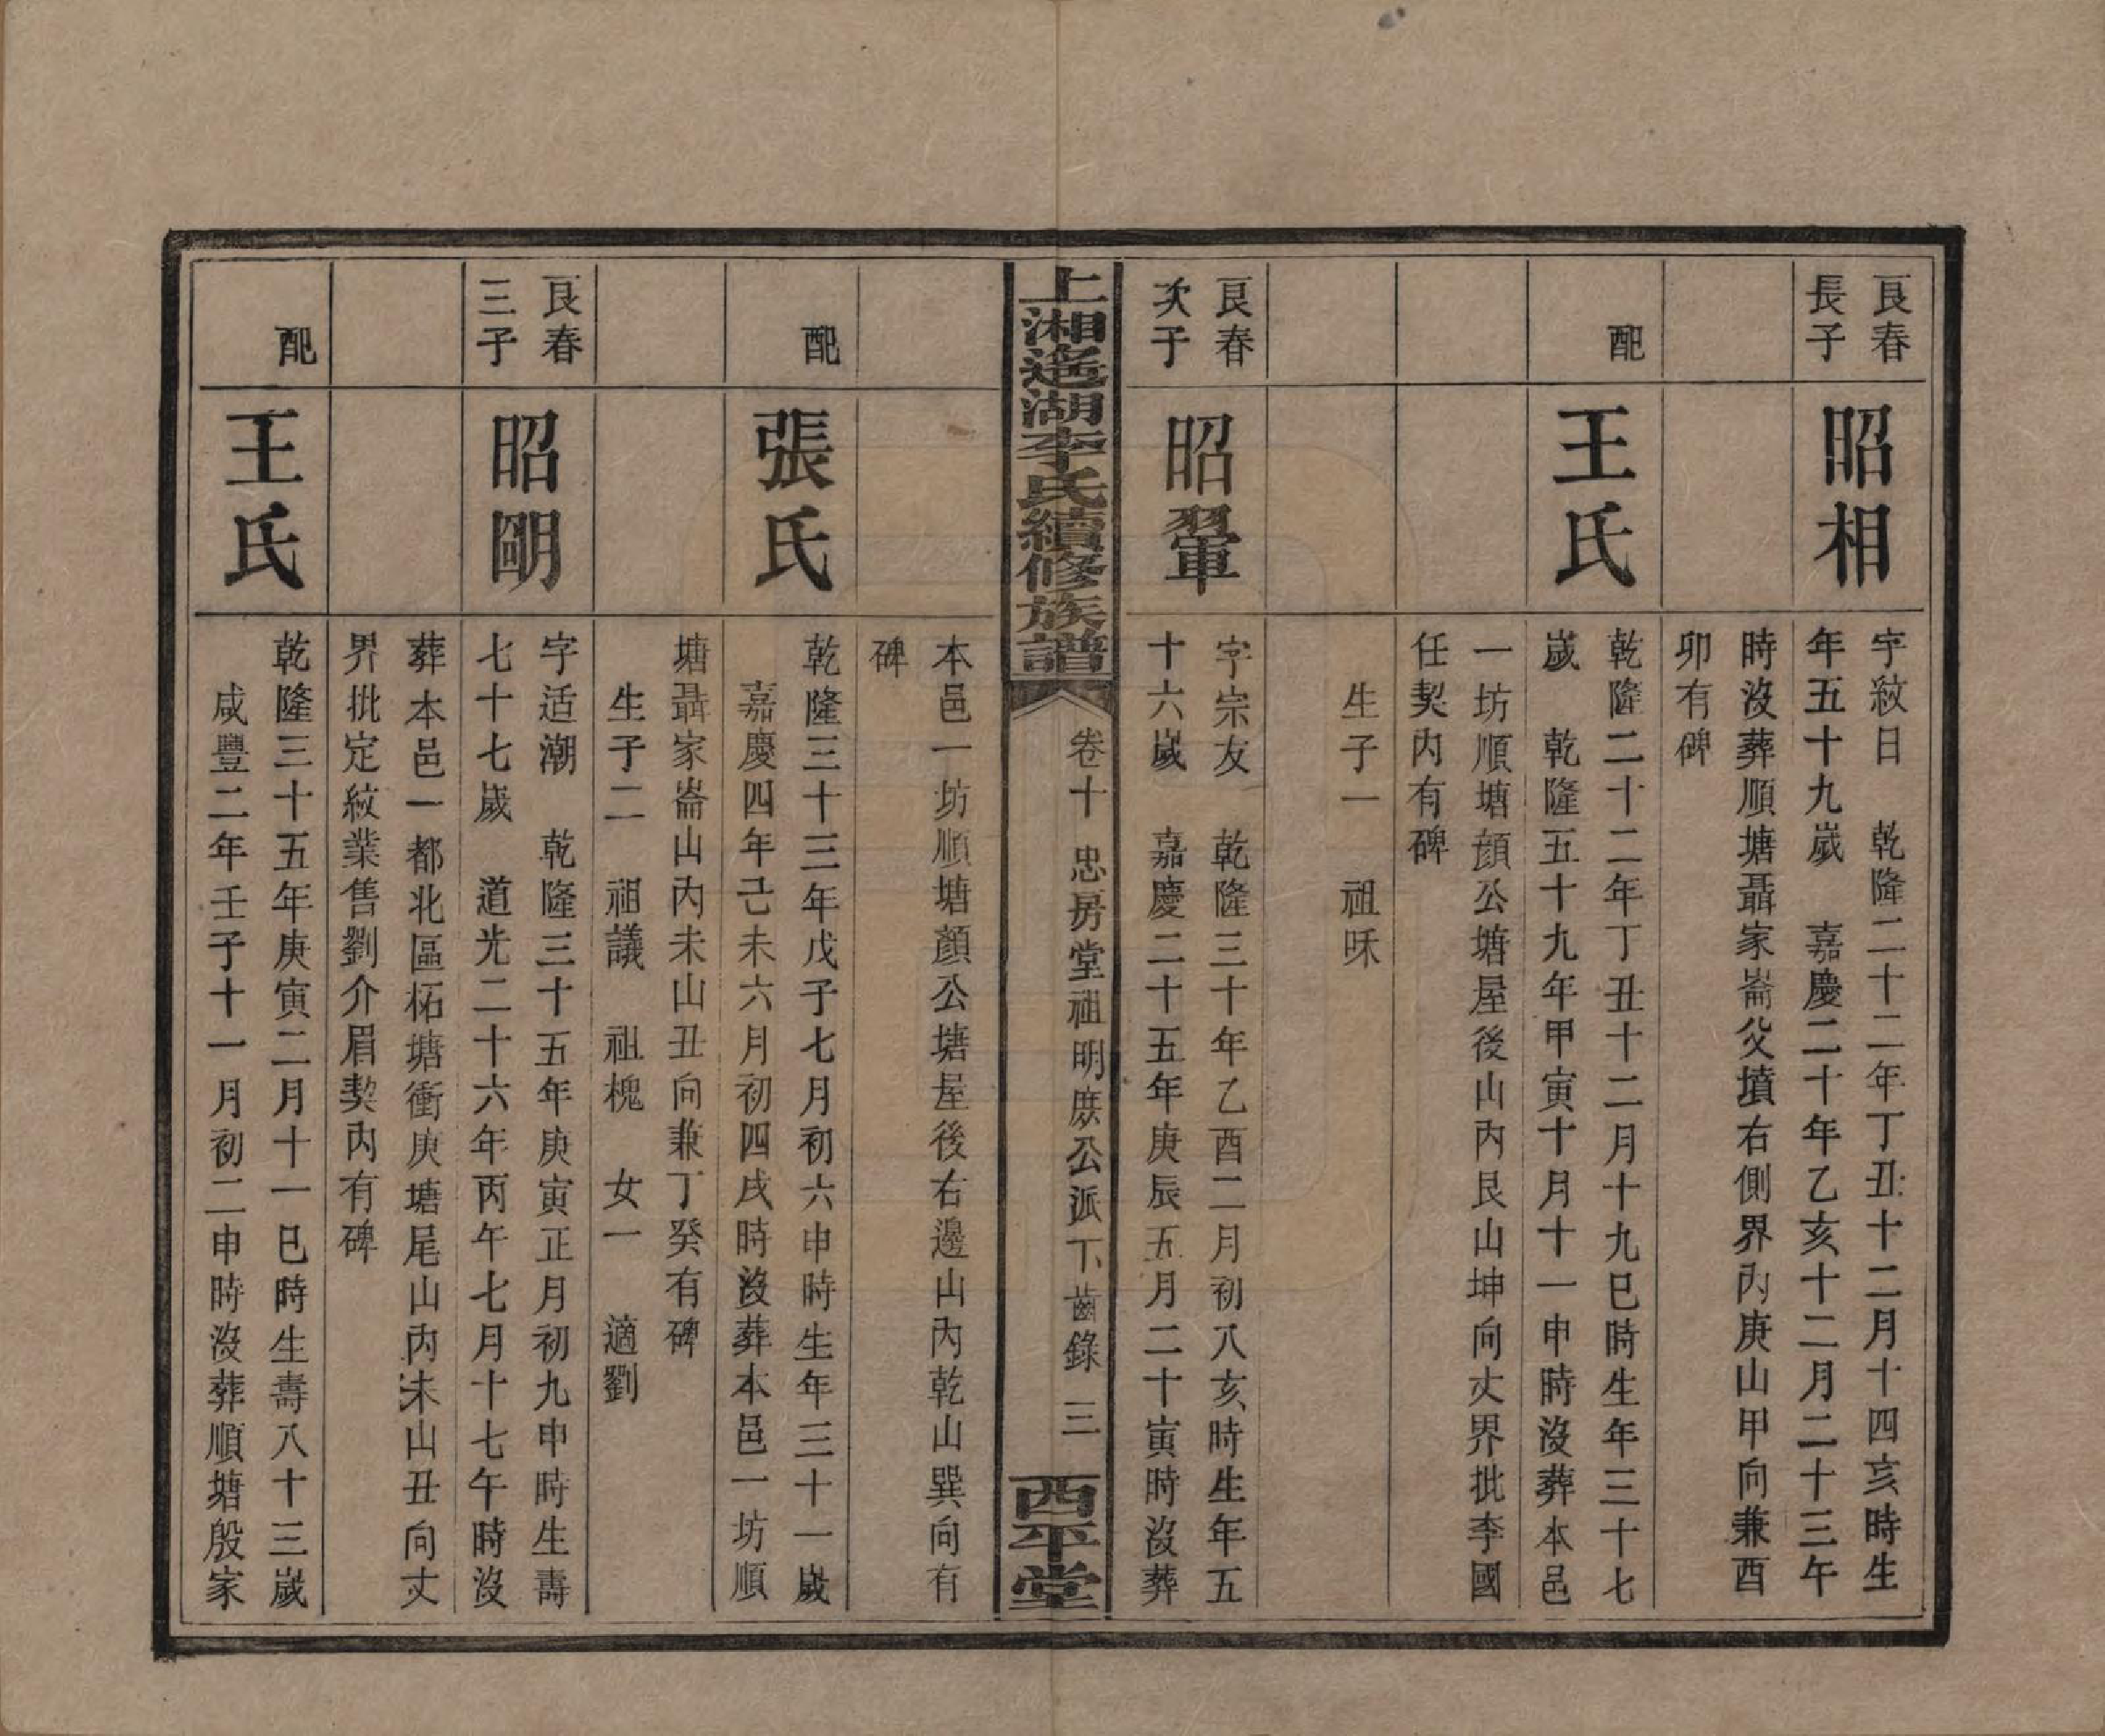 良春
長子
昭相
字紋日　乾隆二十二年丁丑十二月十四亥時生
年五十九歲　嘉慶二十年乙亥十二月二十三午
時沒葬順塘聶家崙父墳右側界內庚山甲向兼酉
卯有碑
配
王氏
乾隆二十二年丁丑十二月十九巳時生年三十七
歲　乾隆五十九年甲寅十月十一申時沒葬本邑
一坊順塘顏公塘屋後山內艮山坤向丈界批李國
任契內有碑
生子一　祖
良春
次子
昭翬
字宗友　乾隆三十年乙酉二月初八亥時生年五
十六歲　嘉慶二十五年庚辰五月二十寅時沒葬
上湘遙湖李氏續修族譜
卷十　忠房堂祖明庶公派下齒錄　三
西平堂
本邑一坊順塘顏公塘屋後右邊山內乾山巽向有
碑
配
張氏
乾隆三十三年戊子七月初六申時生年三十一歲
嘉慶四年己未六月初四戌時沒葬本邑一坊順
塘聶家崙山內未山丑向兼丁癸有碑
生子二　祖議　祖槐　女一　適劉
良春
三子
昭朙
字适潮　乾隆三十五年庚寅正月初九申時生壽
七十七歲　道光二十六年丙午七月十七午時沒
葬本邑一都北區柘塘衝庚塘尾山內未山丑向丈
界批定紋業售劉介眉契內有碑
配
王氏
乾隆三十五年庚寅二月十一巳時生壽八十三歲
咸豐二年壬子十一月初二申時沒葬順塘殷家